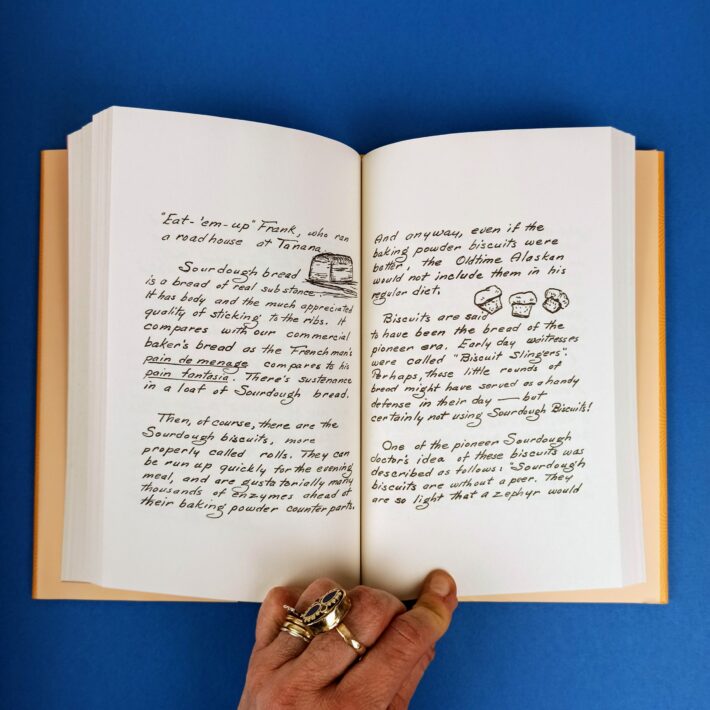 "Eat-'em-up" Frank, who ran
a roadhouse at Tanana.
Sourdough bread
is a bread of real substance..
It has body and the much appreciated
quality of sticking to the ribs. It
compares with our commercial
baker's bread as the Frenchman's
pain de menage compares to his
pain fantasia. There's sustenance
in a loaf of Sourdough bread.
Then, of course, there are the
Sourdough biscuits, more
properly called rolls. They can
be run up quickly for the evening
meal, and are gustatorially many
thousands of enzymes ahead of
their baking powder counterparts.
And anyway, even if the
baking powder biscuits were
better, the Oldtime Alaskan
would not include them in his
regular diet.
Biscuits are said
to have been the bread of the
pioneer era. Early day waitresses
were called "Biscuit Slingers".
Perhaps, those little rounds of
bread might have served as a handy
defense in their day — but
certainly not using Sourdough Biscuits!
One of the pioneer Sourdough
doctor's idea of these biscuits was
described as follows: "Sourdough
biscuits are without a peer. They
are so light that a zephyr would